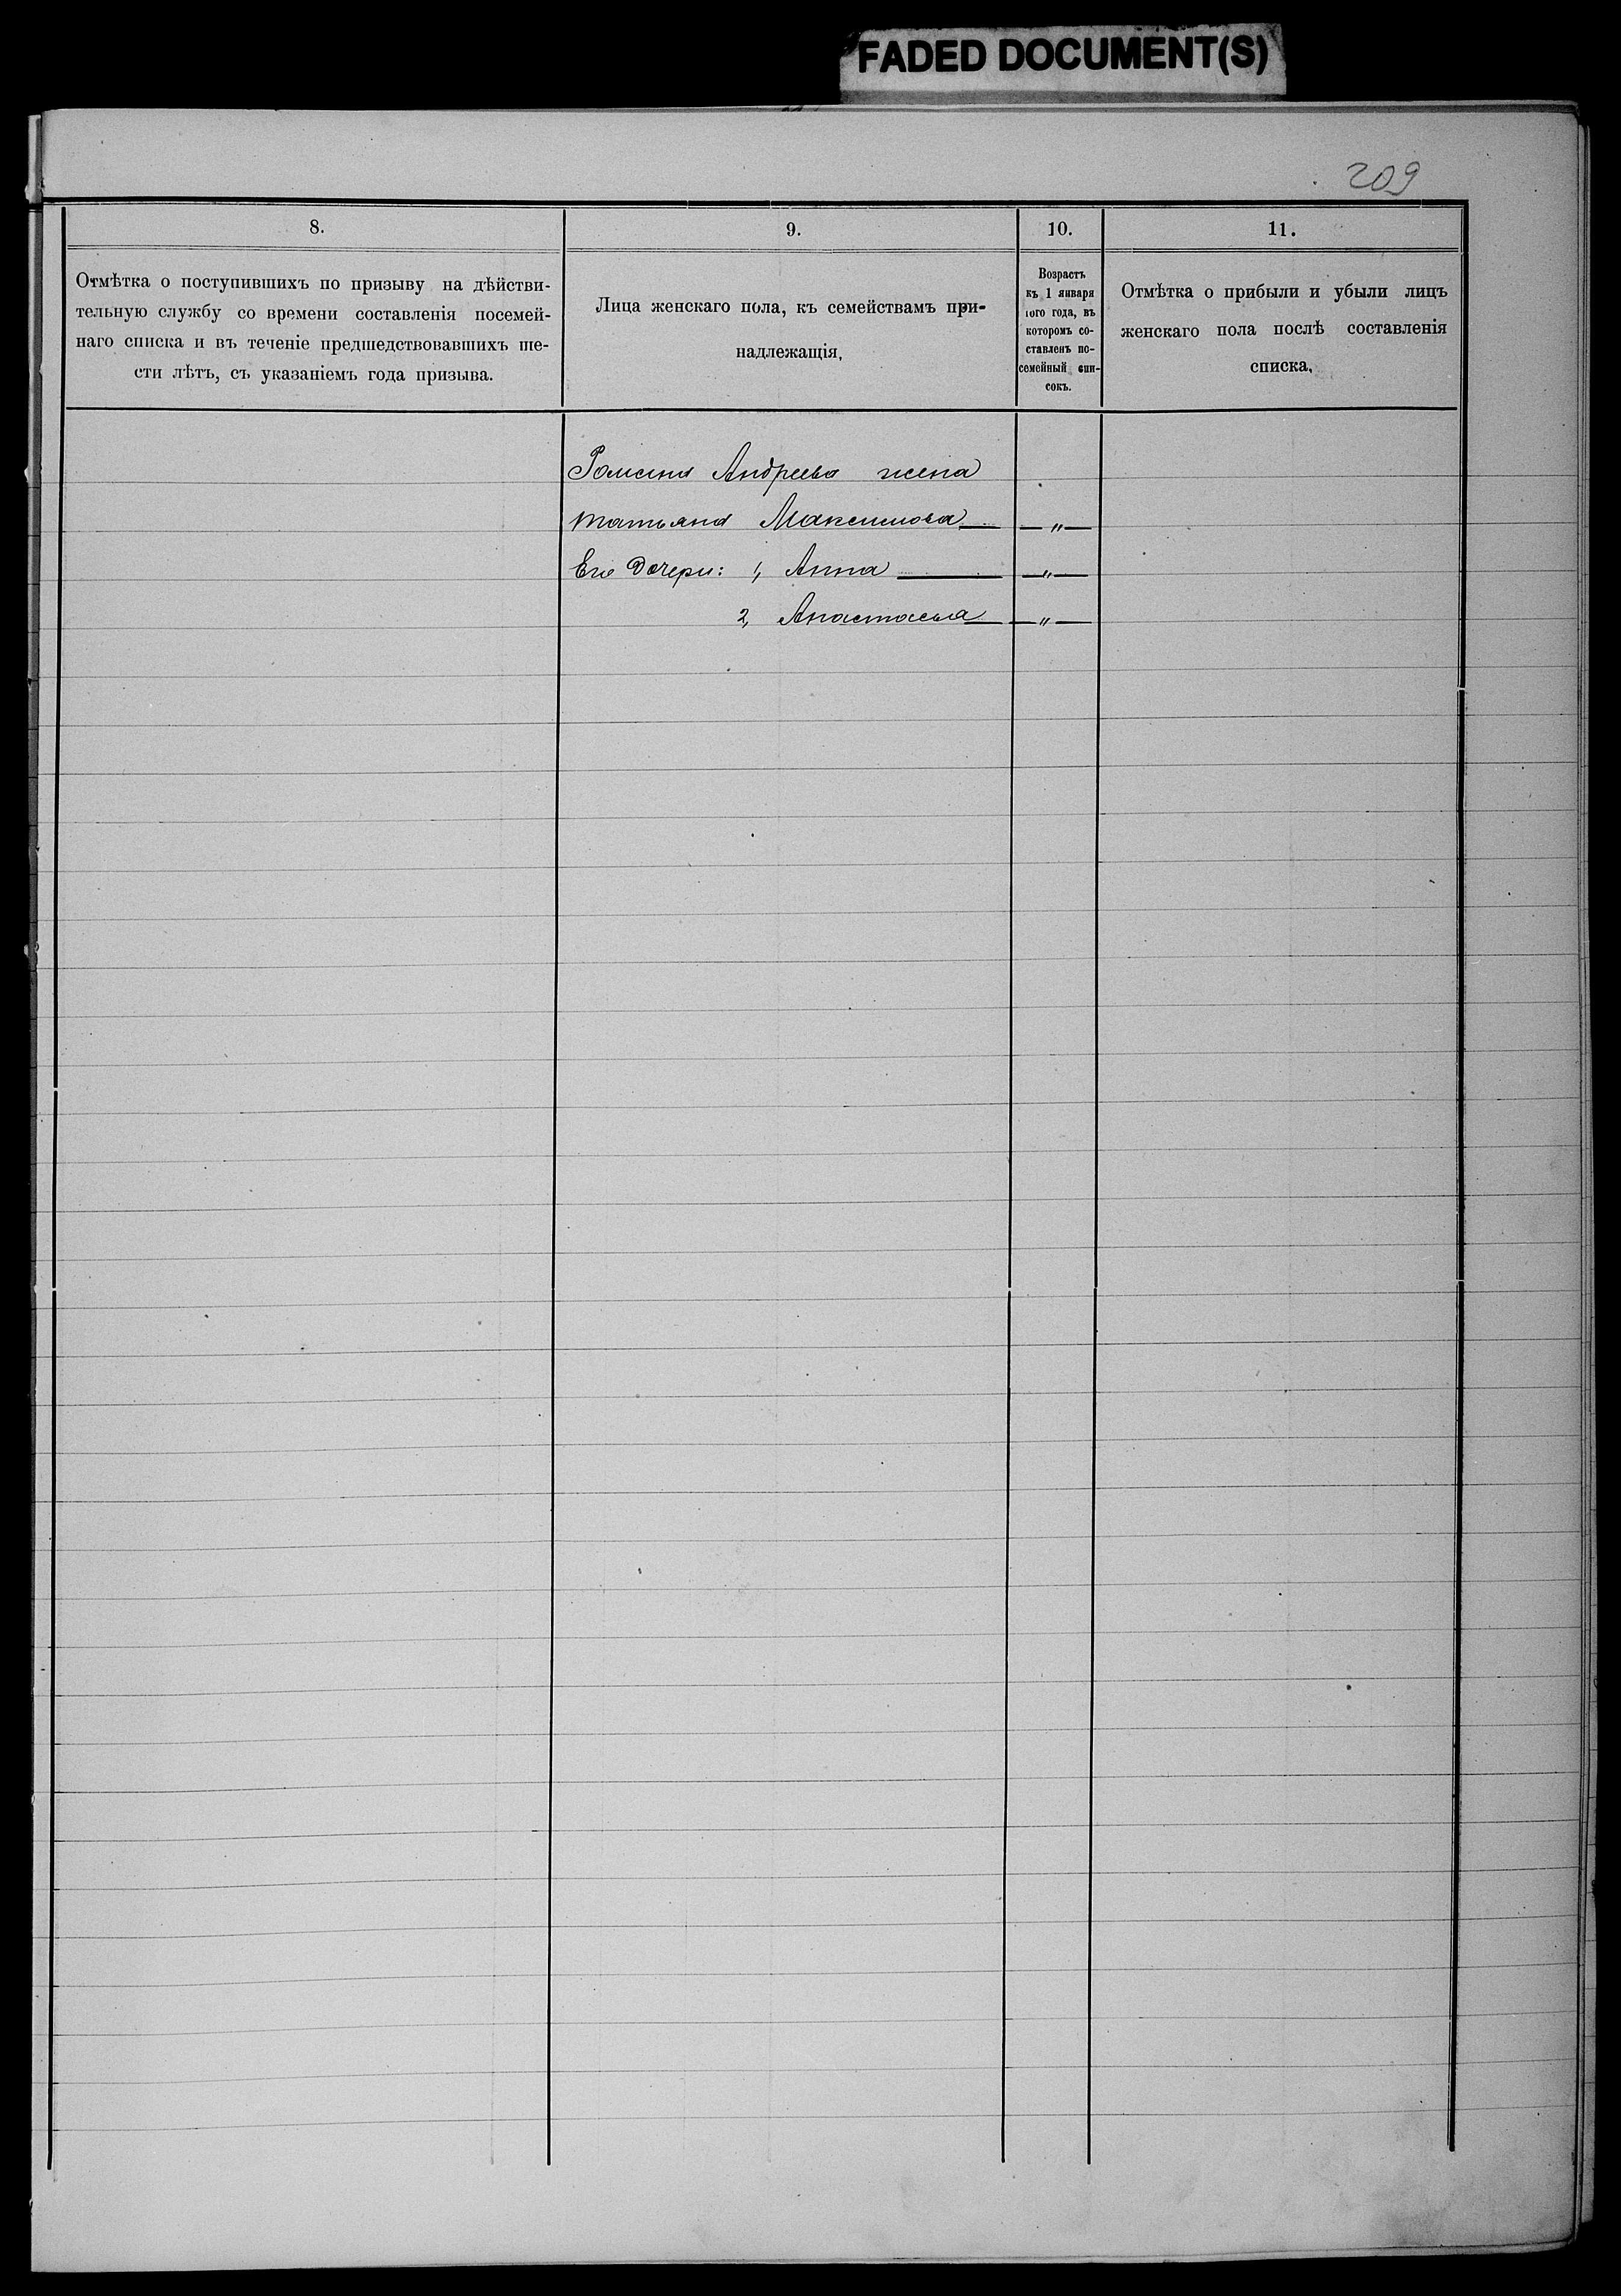 FADED DOCUMENT(S)
209
8.
9.
10.
11.
Отмѣтка о поступившихъ по призыву на дѣйстви-
тельную службу со времени составленія посемей-
наго списка и въ теченіе предшедствовавшихъ ше-
сти лѣтъ, съ указаніемъ года призыва.
Лица женскаго пола, къ семействамъ при-
надлежащія,
Возрастъ
къ 1 января
того года, въ
которомъ со-
ставленъ по-
семейный спи-
сокъ.
Отмѣтка о прибыли и убыли лицъ
женскаго пола послѣ составленія
списка.
Романа Андреева жена
Татьяна Максимова — „ —
Его дочери: 1, Анна — „ —
2, Анастасья — „ —